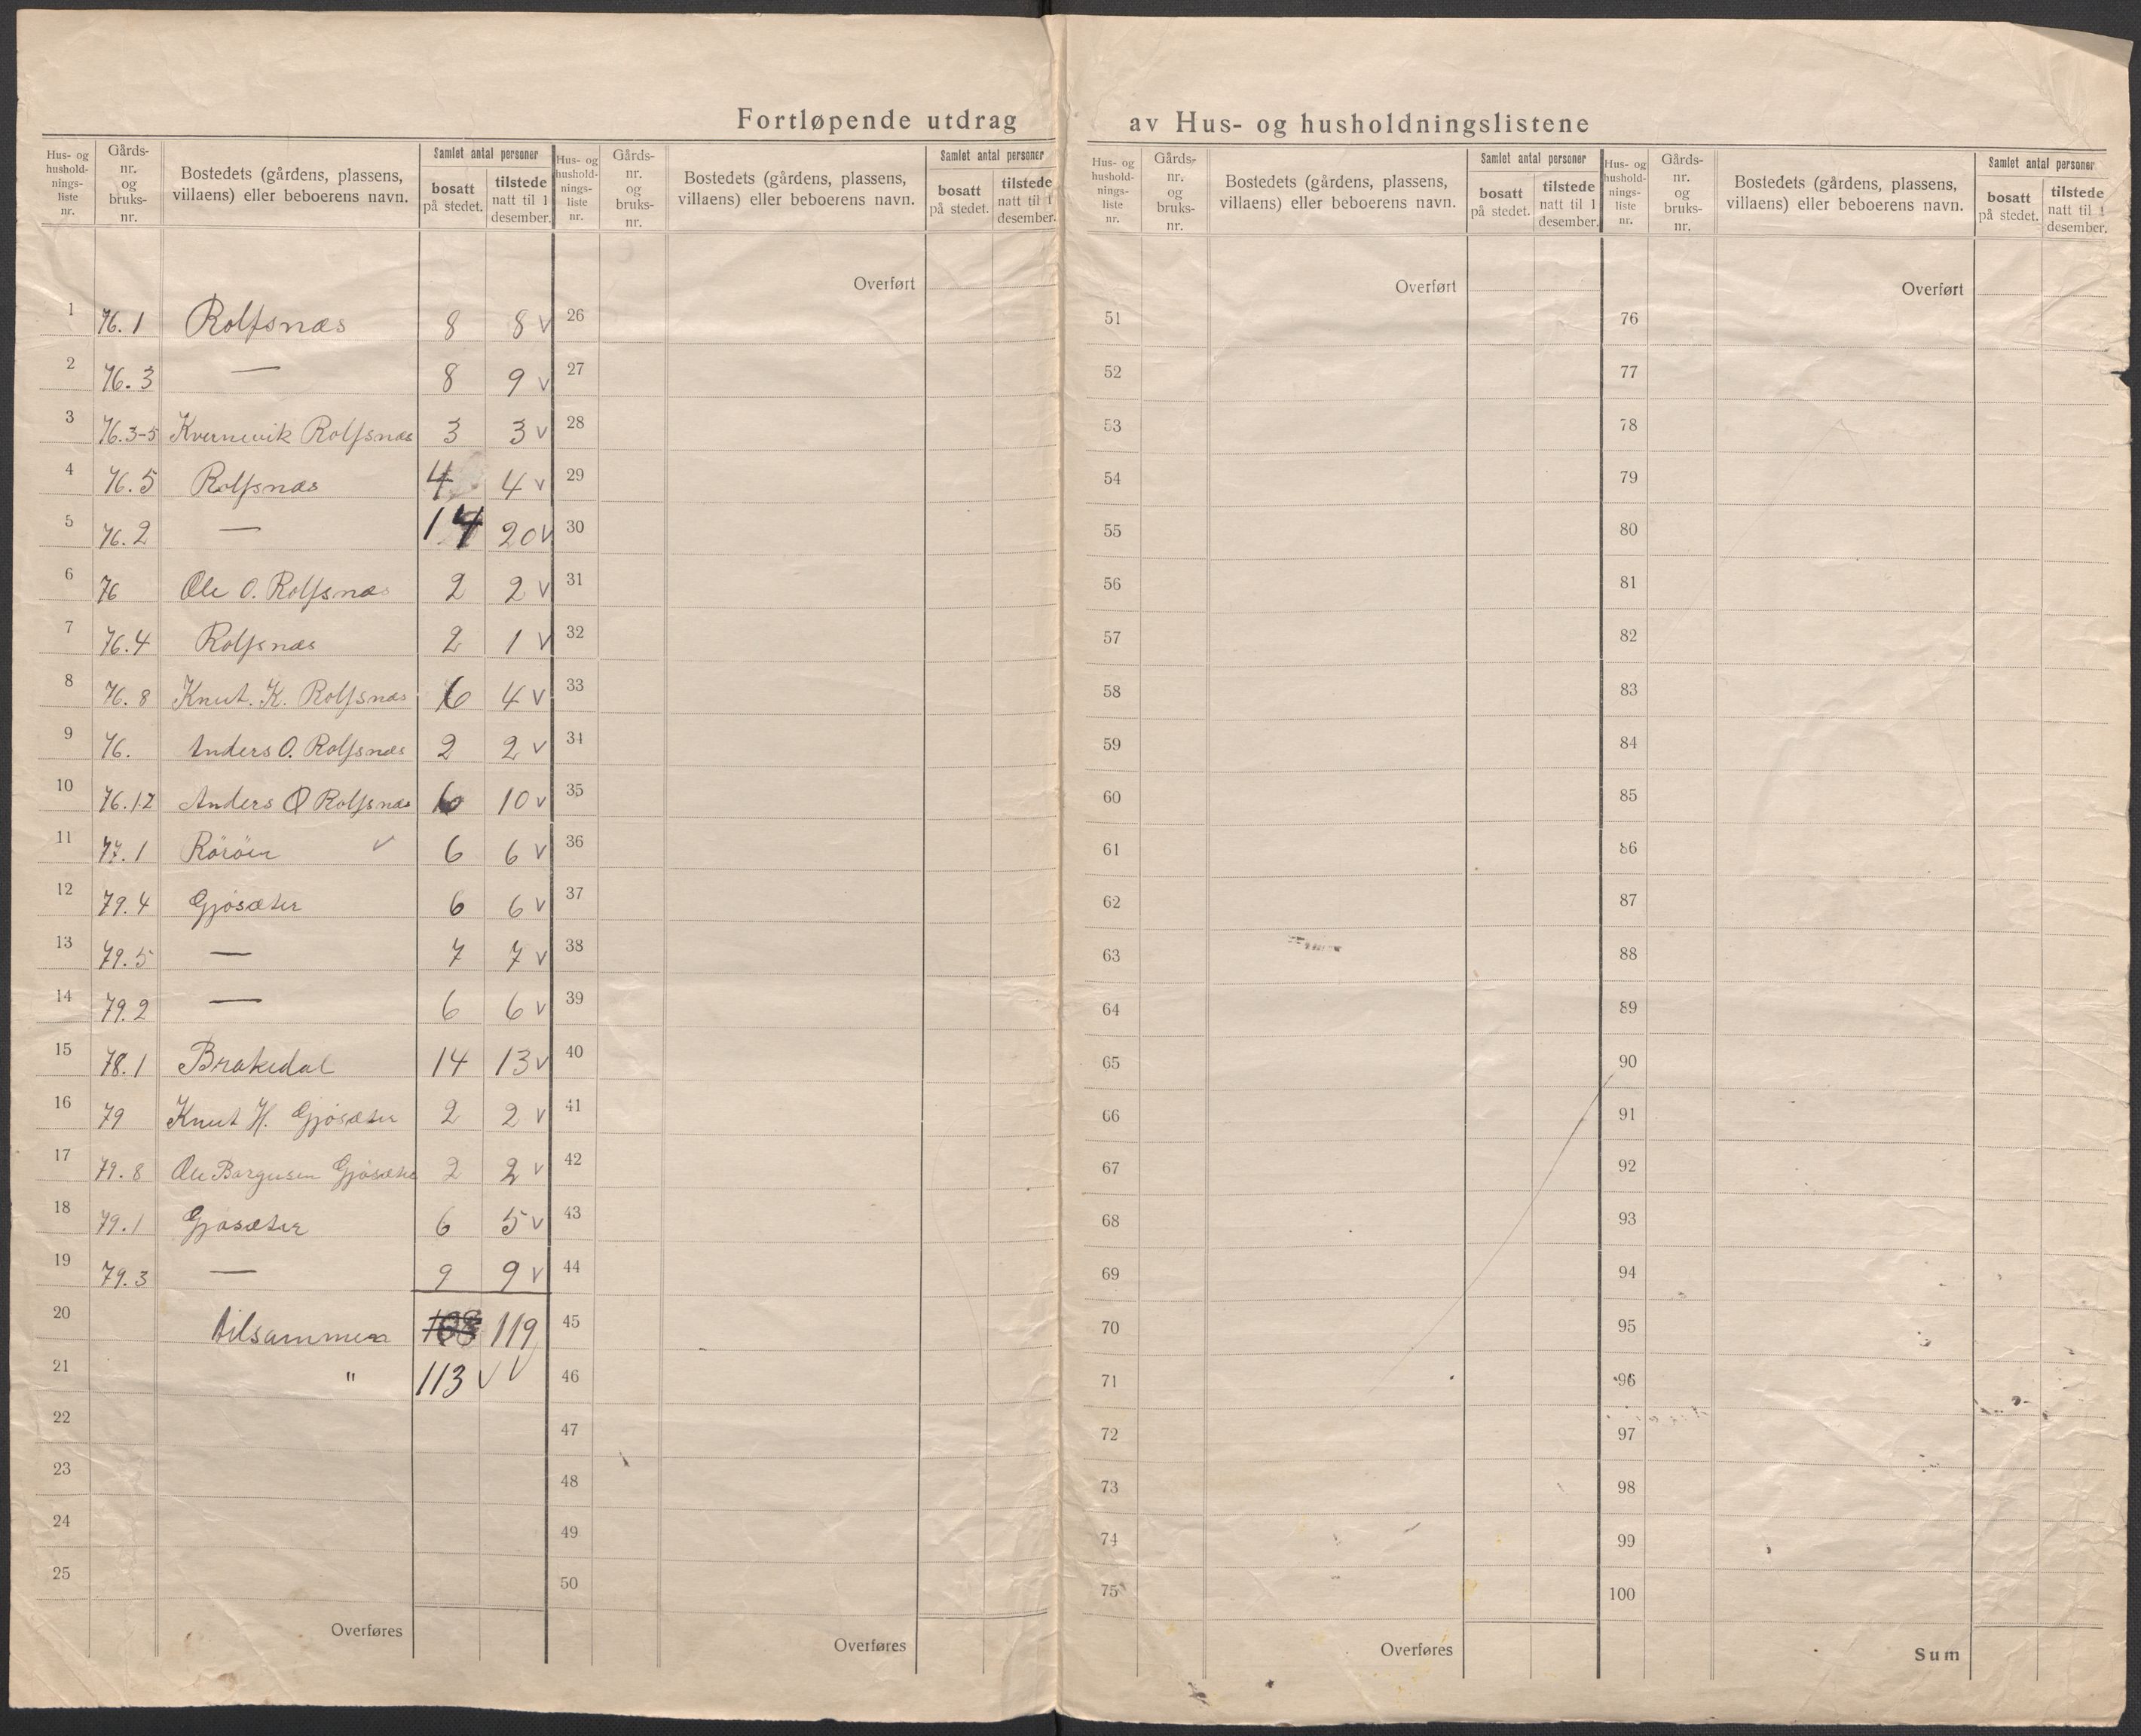 Fortløpende utdrag av Hus- og husholdningslistene
Hus- og hushold-nings-liste nr.
Gårds-nr. og bruks-nr.
Bostedets (gårdens, plassens, villaens) eller beboerens navn.
Samlet antal personer
bosatt på stedet.
tilstede natt til 1 desember.
Hus- og hushold-nings-liste nr.
Gårds-nr. og bruks-nr.
Bostedets (gårdens, plassens, villaens) eller beboerens navn.
Samlet antal personer
bosatt på stedet.
tilstede natt til 1 desember.
Hus- og hushold-nings-liste nr.
Gårds-nr. og bruks-nr.
Bostedets (gårdens, plassens, villaens) eller beboerens navn.
Samlet antal personer
bosatt på stedet.
tilstede natt til 1 desember.
Hus- og hushold-nings-liste nr.
Gårds-nr. og bruks-nr.
Bostedets (gårdens, plassens, villaens) eller beboerens navn.
Samlet antal personer
bosatt på stedet.
tilstede natt til 1 desember.
1 76.1 Rolfsnæs 8 8 v
2 76.3 — 8 9 v
3 76.3-5 Kvernevik Rolfsnæs 3 3 v
4 76.5 Rolfsnæs 4 4 v
5 76.2 — 14 20 v
6 76 Ole O. Rolfsnæs 2 2 v
7 76.4 Rolfsnæs 2 1 v
8 76.8 Knut. K. Rolfsnæs 6 4 v
9 76. Anders O. Rolfsnæs 2 2 v
10 76.12 Anders O Rolfsnæs 6 10 v
11 77.1 Röröen v 6 6 v
12 79.4 Gjøsæter 6 6 v
13 79.5 — 7 7 v
14 79.2 — 6 6 v
15 78.1 Brakedal 14 13 v
16 79 Knut H. Gjøsæter 2 2 v
17 79.8 Ole Gjøsæter 2 2 v
18 79.1 Gjøsæter 6 5 v
19 79.3 — 9 9 v
20 tilsammen 119
21 " 113 v v
22
23
24
25
Overføres
Overført
26
27
28
29
30
31
32
33
34
35
36
37
38
39
40
41
42
43
44
45
46
47
48
49
50
Overføres
Overført
51
52
53
54
55
56
57
58
59
60
61
62
63
64
65
66
67
68
69
70
71
72
73
74
75
Overføres
Overført
76
77
78
79
80
81
82
83
84
85
86
87
88
89
90
91
92
93
94
95
96
97
98
99
100
Sum